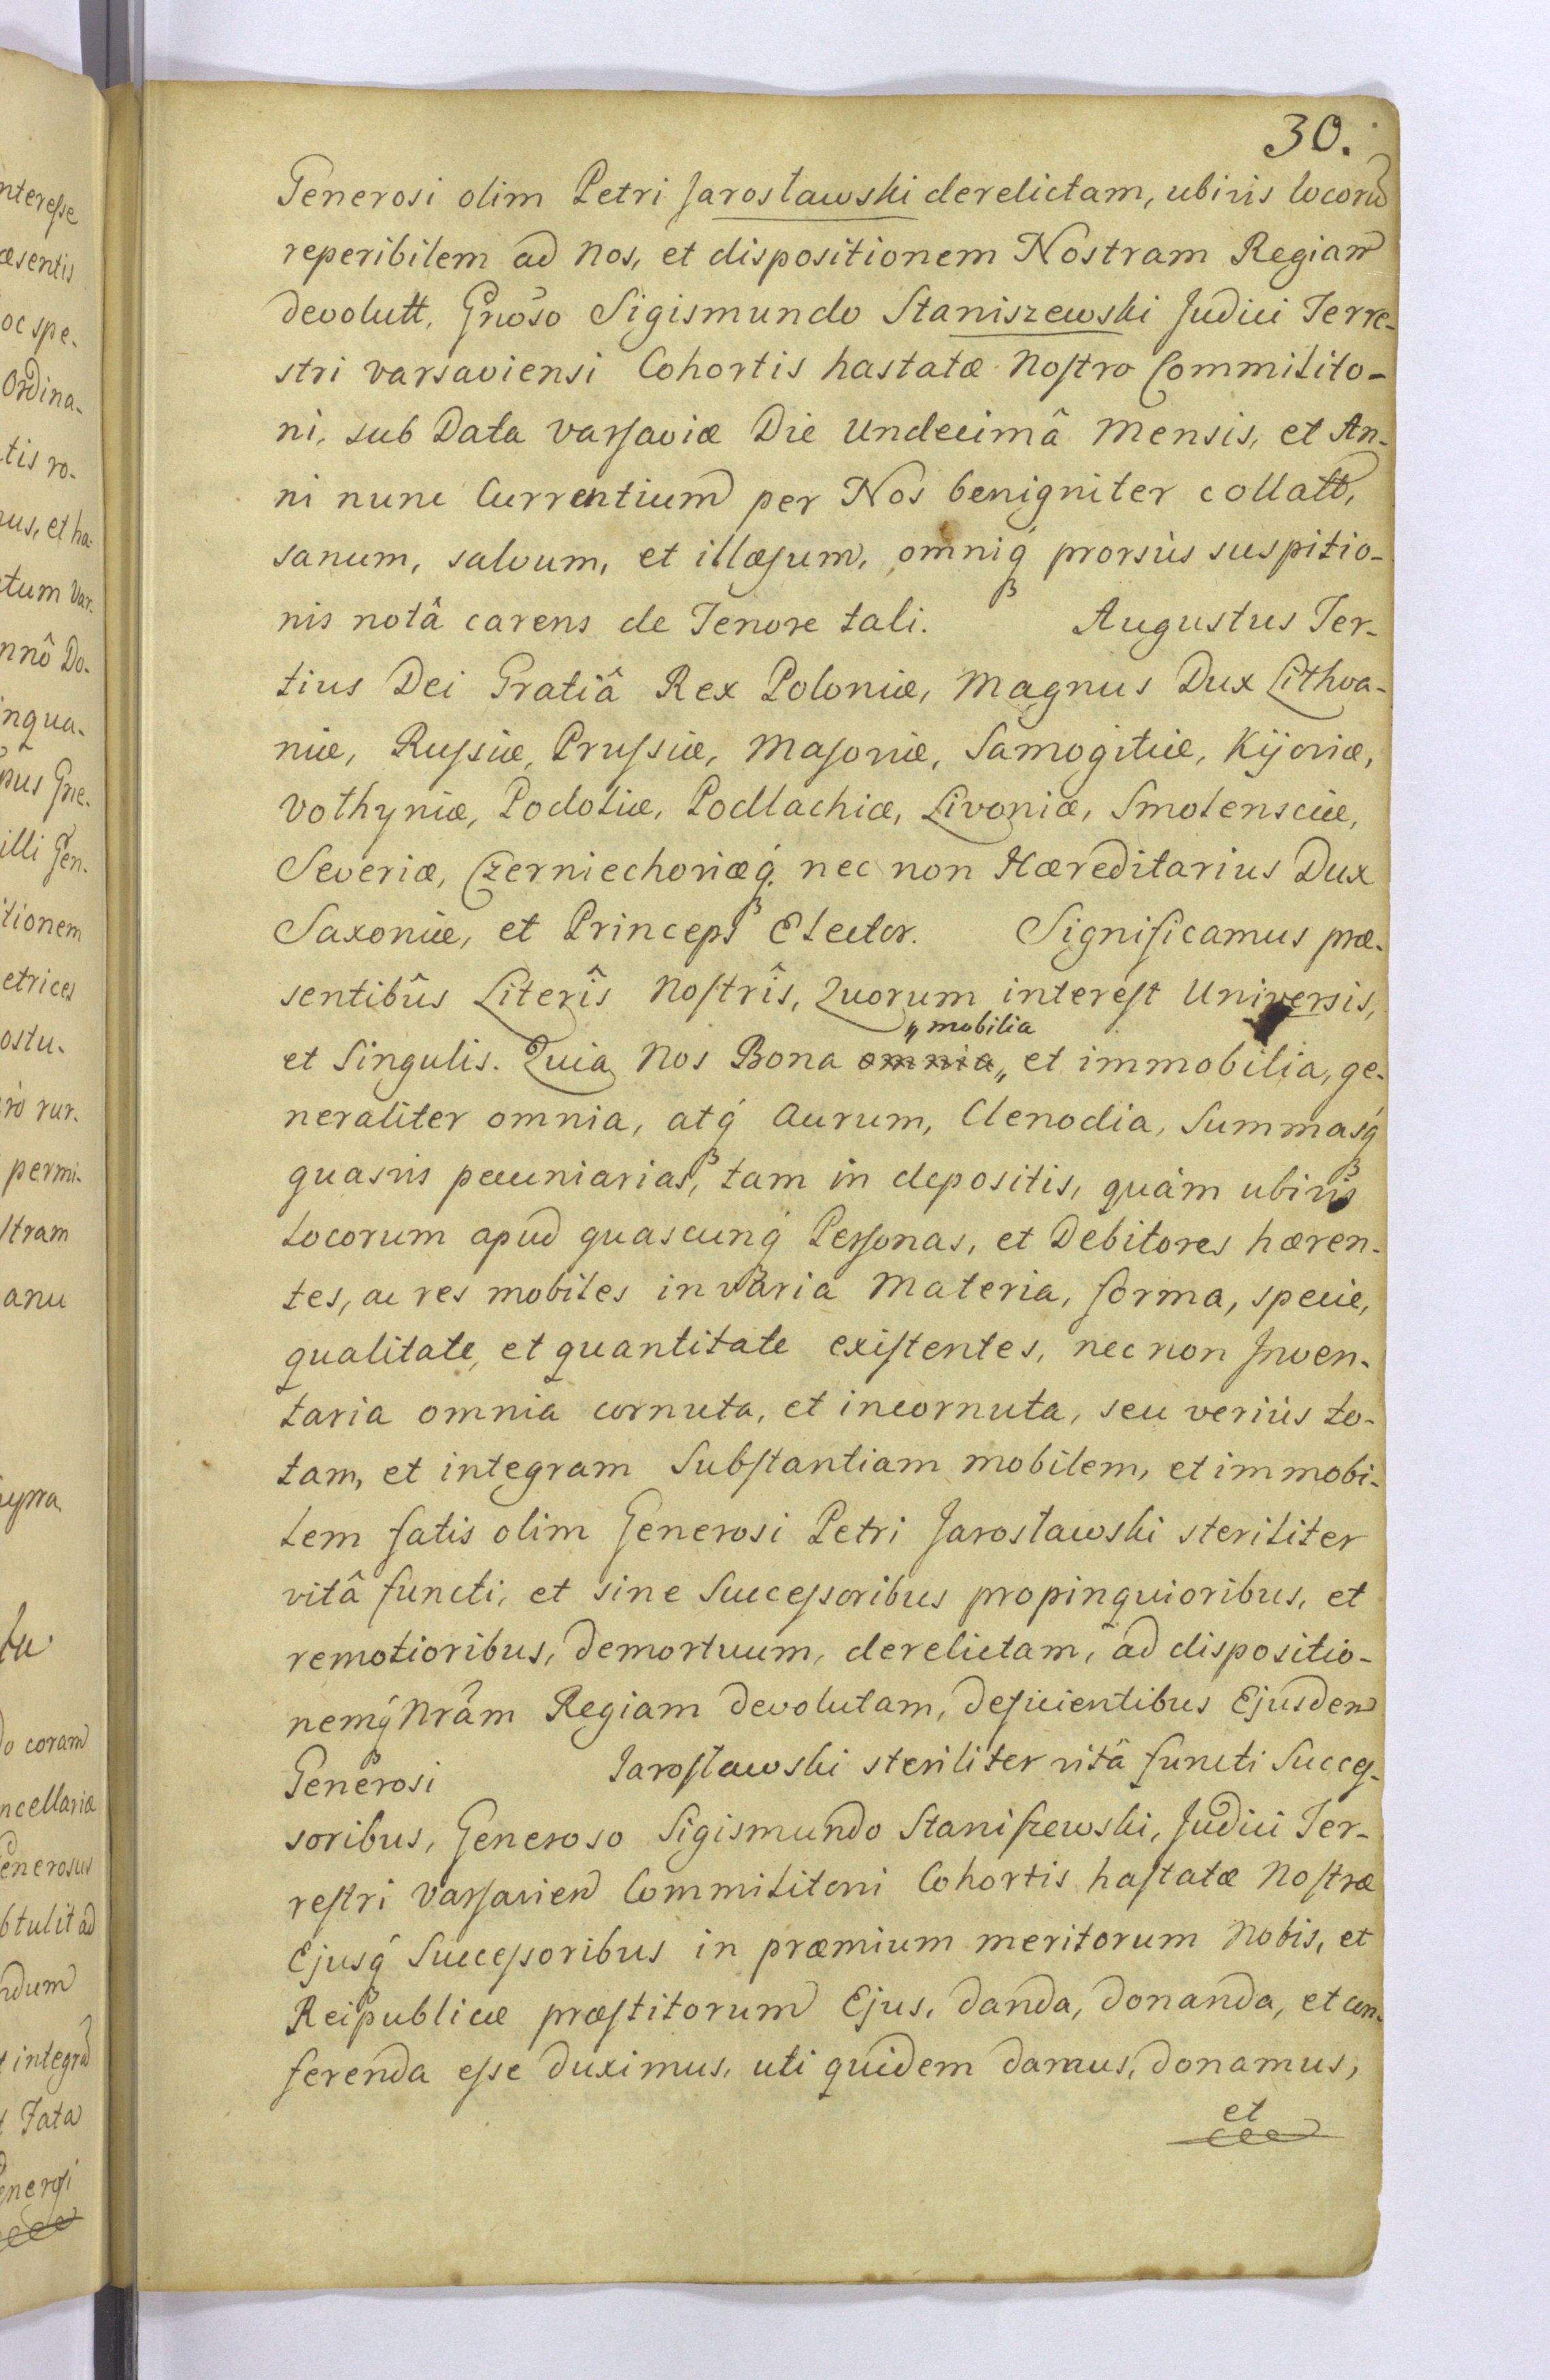 30.
Generosi olim Petri Jarosławski derelictam, ubivis locorũ
reperibilem ad Nos, et dispositionem Nostram Regiam
devolutt. Gñoso Sigismundo Staniszewski Judici Terre-
stri Varsaviensi Cohortis hastatæ Nostro Commilito-
ni, sub Data Varsaviæ Die Undecimâ Mensis, et An-
ni nunc Currentium per Nos benigniter collatt,
sanum, salvum, et illæsum, omniq́ prorsùs suspitio-
nis notâ carens de Tenore tali. Augustus Ter-
tius Dei Gratiâ Rex Poloniæ, Magnus Dux Lithva-
niæ, Russiæ, Prussiæ, Masoviæ, Samogitiæ, Kijoviæ,
Vołhyniæ, Podoliæ, Podlachiæ, Livoniæ, Smolensciæ,
Severiæ, Czerniechoviæq́. nec non Hæreditarius Dux
Saxoniæ, et Princeps Elector. Significamus præ-
sentibûs Literîs Nostrîs, Quorum interest Universis,
„ mobilia
et Singulis. Quia Nos Bona omnia „ et immobilia, ge-
neraliter omnia, atq́ Aurum, Clenodia, Summasq́
quasvis pecuniarias, tam in depositis, quàm ubivis
Locorum apud quascunq́ Personas, et Debitores hæren-
tes, ac res mobiles in varia Materia, forma, specie,
qualitate, et quantitate existentes, nec non Inven-
taria omnia cornuta, et incornuta, seu veriùs to-
tam, et integram Substantiam mobilem, et immobi-
lem fatis olim Generosi Petri Jarosławski steriliter
vitâ functi, et sine Successoribus propinquioribus, et
remotioribus, demortuum, derelictam, ad dispositio-
nemq́ Nrãm Regiam devolutam, deficientibus Ejusdem
Generosi Jarosławski steriliter vitâ functi Succes-
soribus, Generoso Sigismundo Staniszewski, Judici Ter-
restri Varsavien Commilitoni Cohortis hastatæ Nostræ
Ejusq́ Successoribus in præmium meritorum Nobis, et
Reipublicæ præstitorum Ejus, danda, donanda, et con-
ferenda esse duximus, uti quidem damus, donamus,
et
nteresse
æsentis
oc spe-
Ordina-
tis ro-
us, et ha-
tum Var.
nnô Do-
nqua-
illi Gen.
itionem
etrices
ostu-
rò rur.
permi-
stram
anu
o coram
ncellariæ
enerosus
btulit ad
ndum
integrã
Fata
enerosi